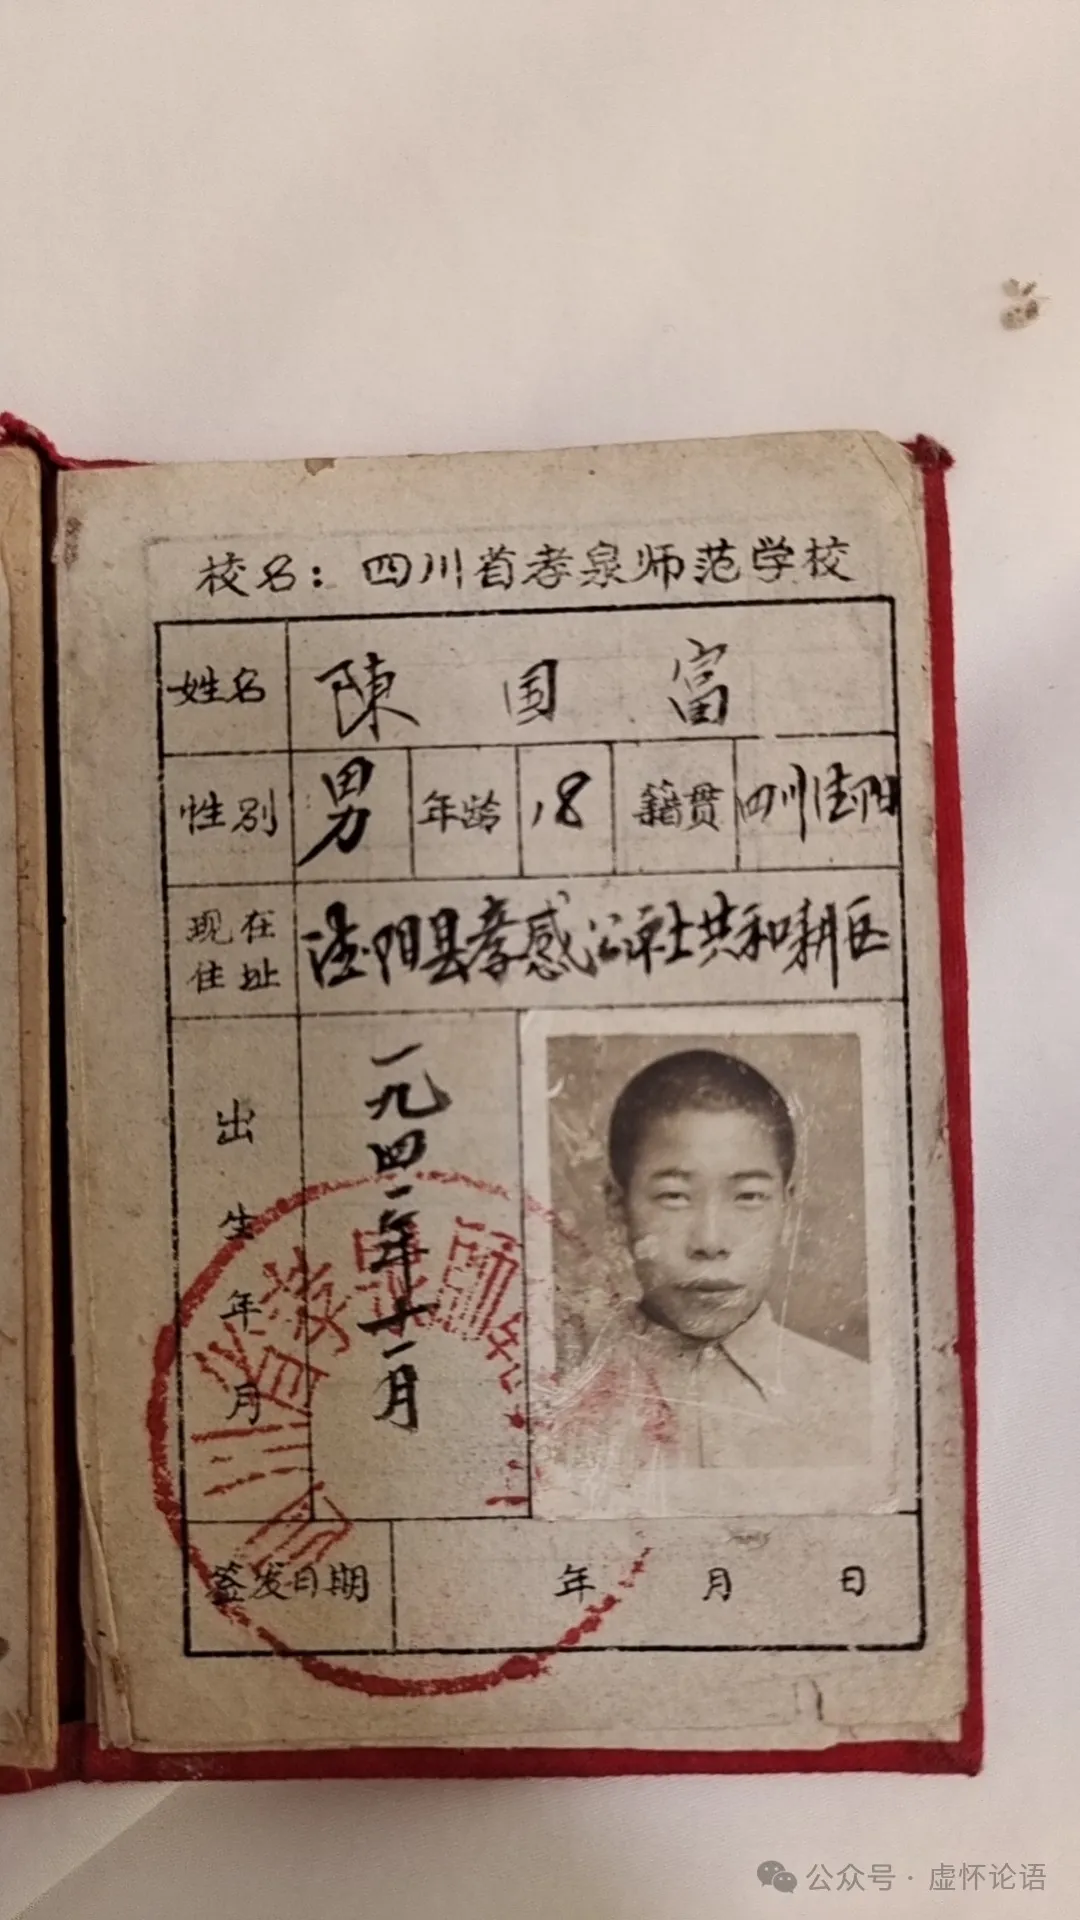 校名：四川省孝泉师范学校
姓名 陳国富
性别 男 年龄 18 籍贯 四川德阳
现在住址 德阳县孝感公社共和耕区
出生年月 一九四二年十一月
签发日期 年 月 日
公众号 · 虚怀论语